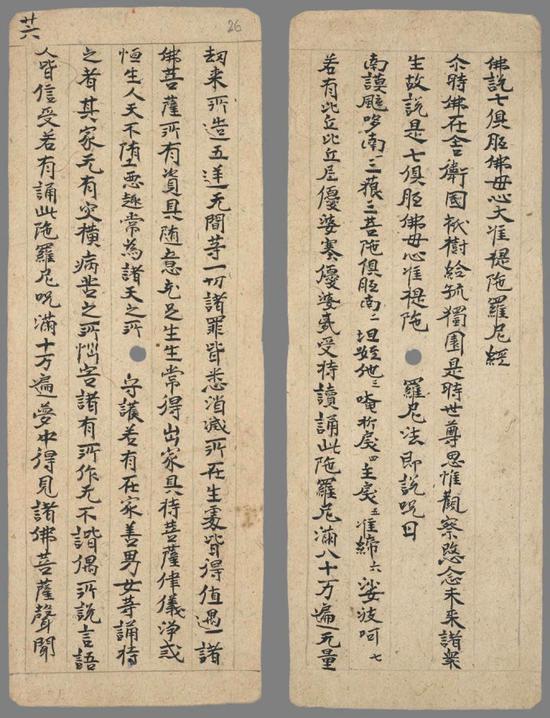 佛說七俱胝佛母心大准提陁羅尼經
尒時佛在舍衛國祇樹給孤獨園是時世尊思惟觀察愍念未來諸衆
生故說是七俱胝佛母心准提陁羅尼法即說呪曰
南謨颯哆南一三藐三菩陁俱胝南二怛姪他三唵折戾四主戾五准締六娑波呵七
若有比丘比丘尼優婆塞優婆夷受持讀誦此陁羅尼滿八十万遍无量
26
劫來所造五逆无間等一切諸罪皆悉消滅所在生處皆得值遇諸
佛菩薩所有資具随意充足生生常得出家具持菩薩律儀淨戒
恒生人天不墮惡趣常為諸天之所守護若有在家善男女等誦持
之者其家无有灾橫病苦之所惱害諸有所作无不諧偶所說言語
人皆信受若有誦此陁羅尼呪滿十万遍夢中得見諸佛菩薩聲聞
廿六